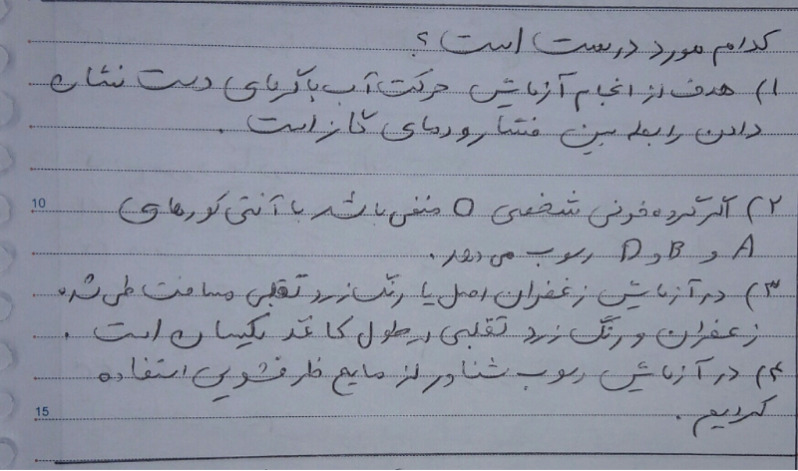 کدام مورد درست است؟
۱) هدف از انجام آزمایش حرکت آب با گرمای دست نشان
دادن رابطه بین فشار و دمای گاز است.
10
۲) اگر گروه خونی شخصی O منفی باشد با آنتی کورهای
A و B و D رسوب می دهد.
۳) در آزمایش زعفران اصل یا رنگ زرد تقلبی مسافت طی شده
زعفران و رنگ زرد تقلبی در طول کاغذ یکسان است.
۴) در آزمایش رسوب شناور از مایع ظرفشویی استفاده
15
کردیم.